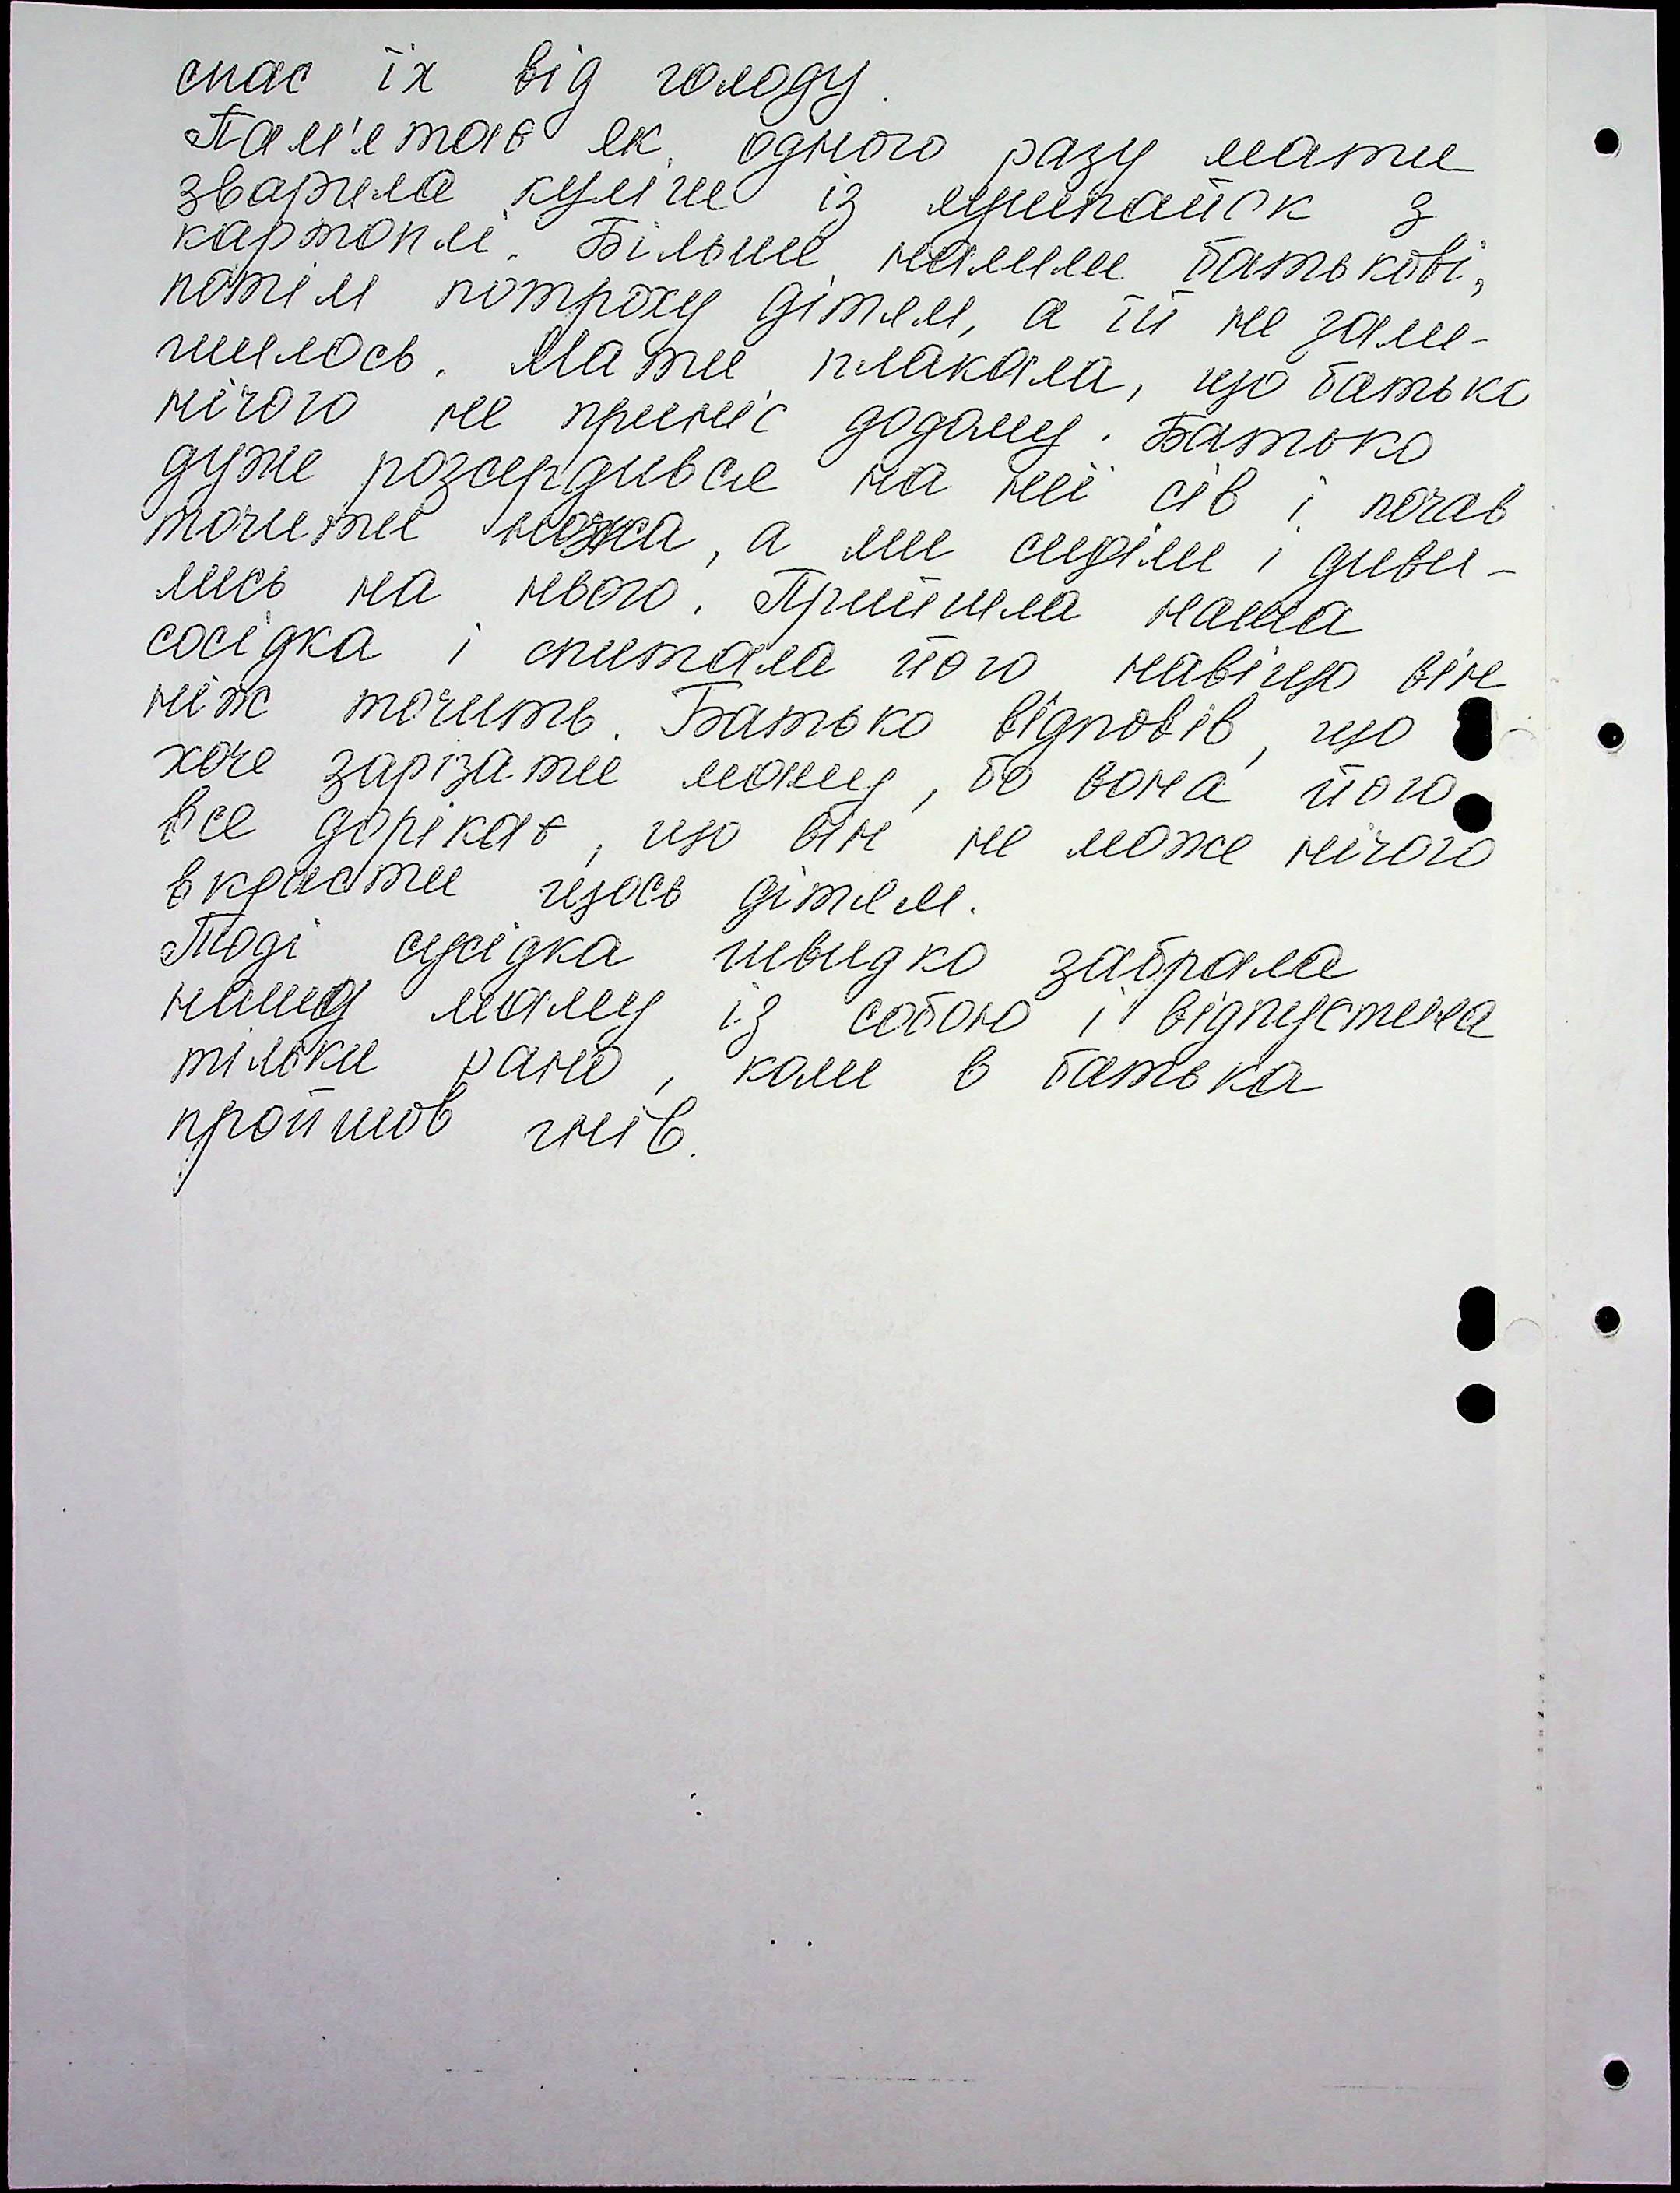 спас їх від голоду.
Пам'ятає як одного разу мати
зварила куліш із лушпайок з
картоплі. Більше налили батькові,
потім потроху дітям, а їй не зали-
шилось. Мати плакала, що батько
нічого не приніс додому. Батько
дуже розсердився на неї сів і почав
точити ножа, а ми сиділи і диви-
лись на нього. Прийшла наша
сосідка і спитала його навіщо він
ніж точить. Батько відповів, що
хоче зарізати мамку, бо вона його
все дорікає, що він не може нічого
вкрасти щось дітям.
Тоді сусідка швидко забрала
нашу маму із собою і відпустила
тільки рано, коли в батька
пройшов гнів.